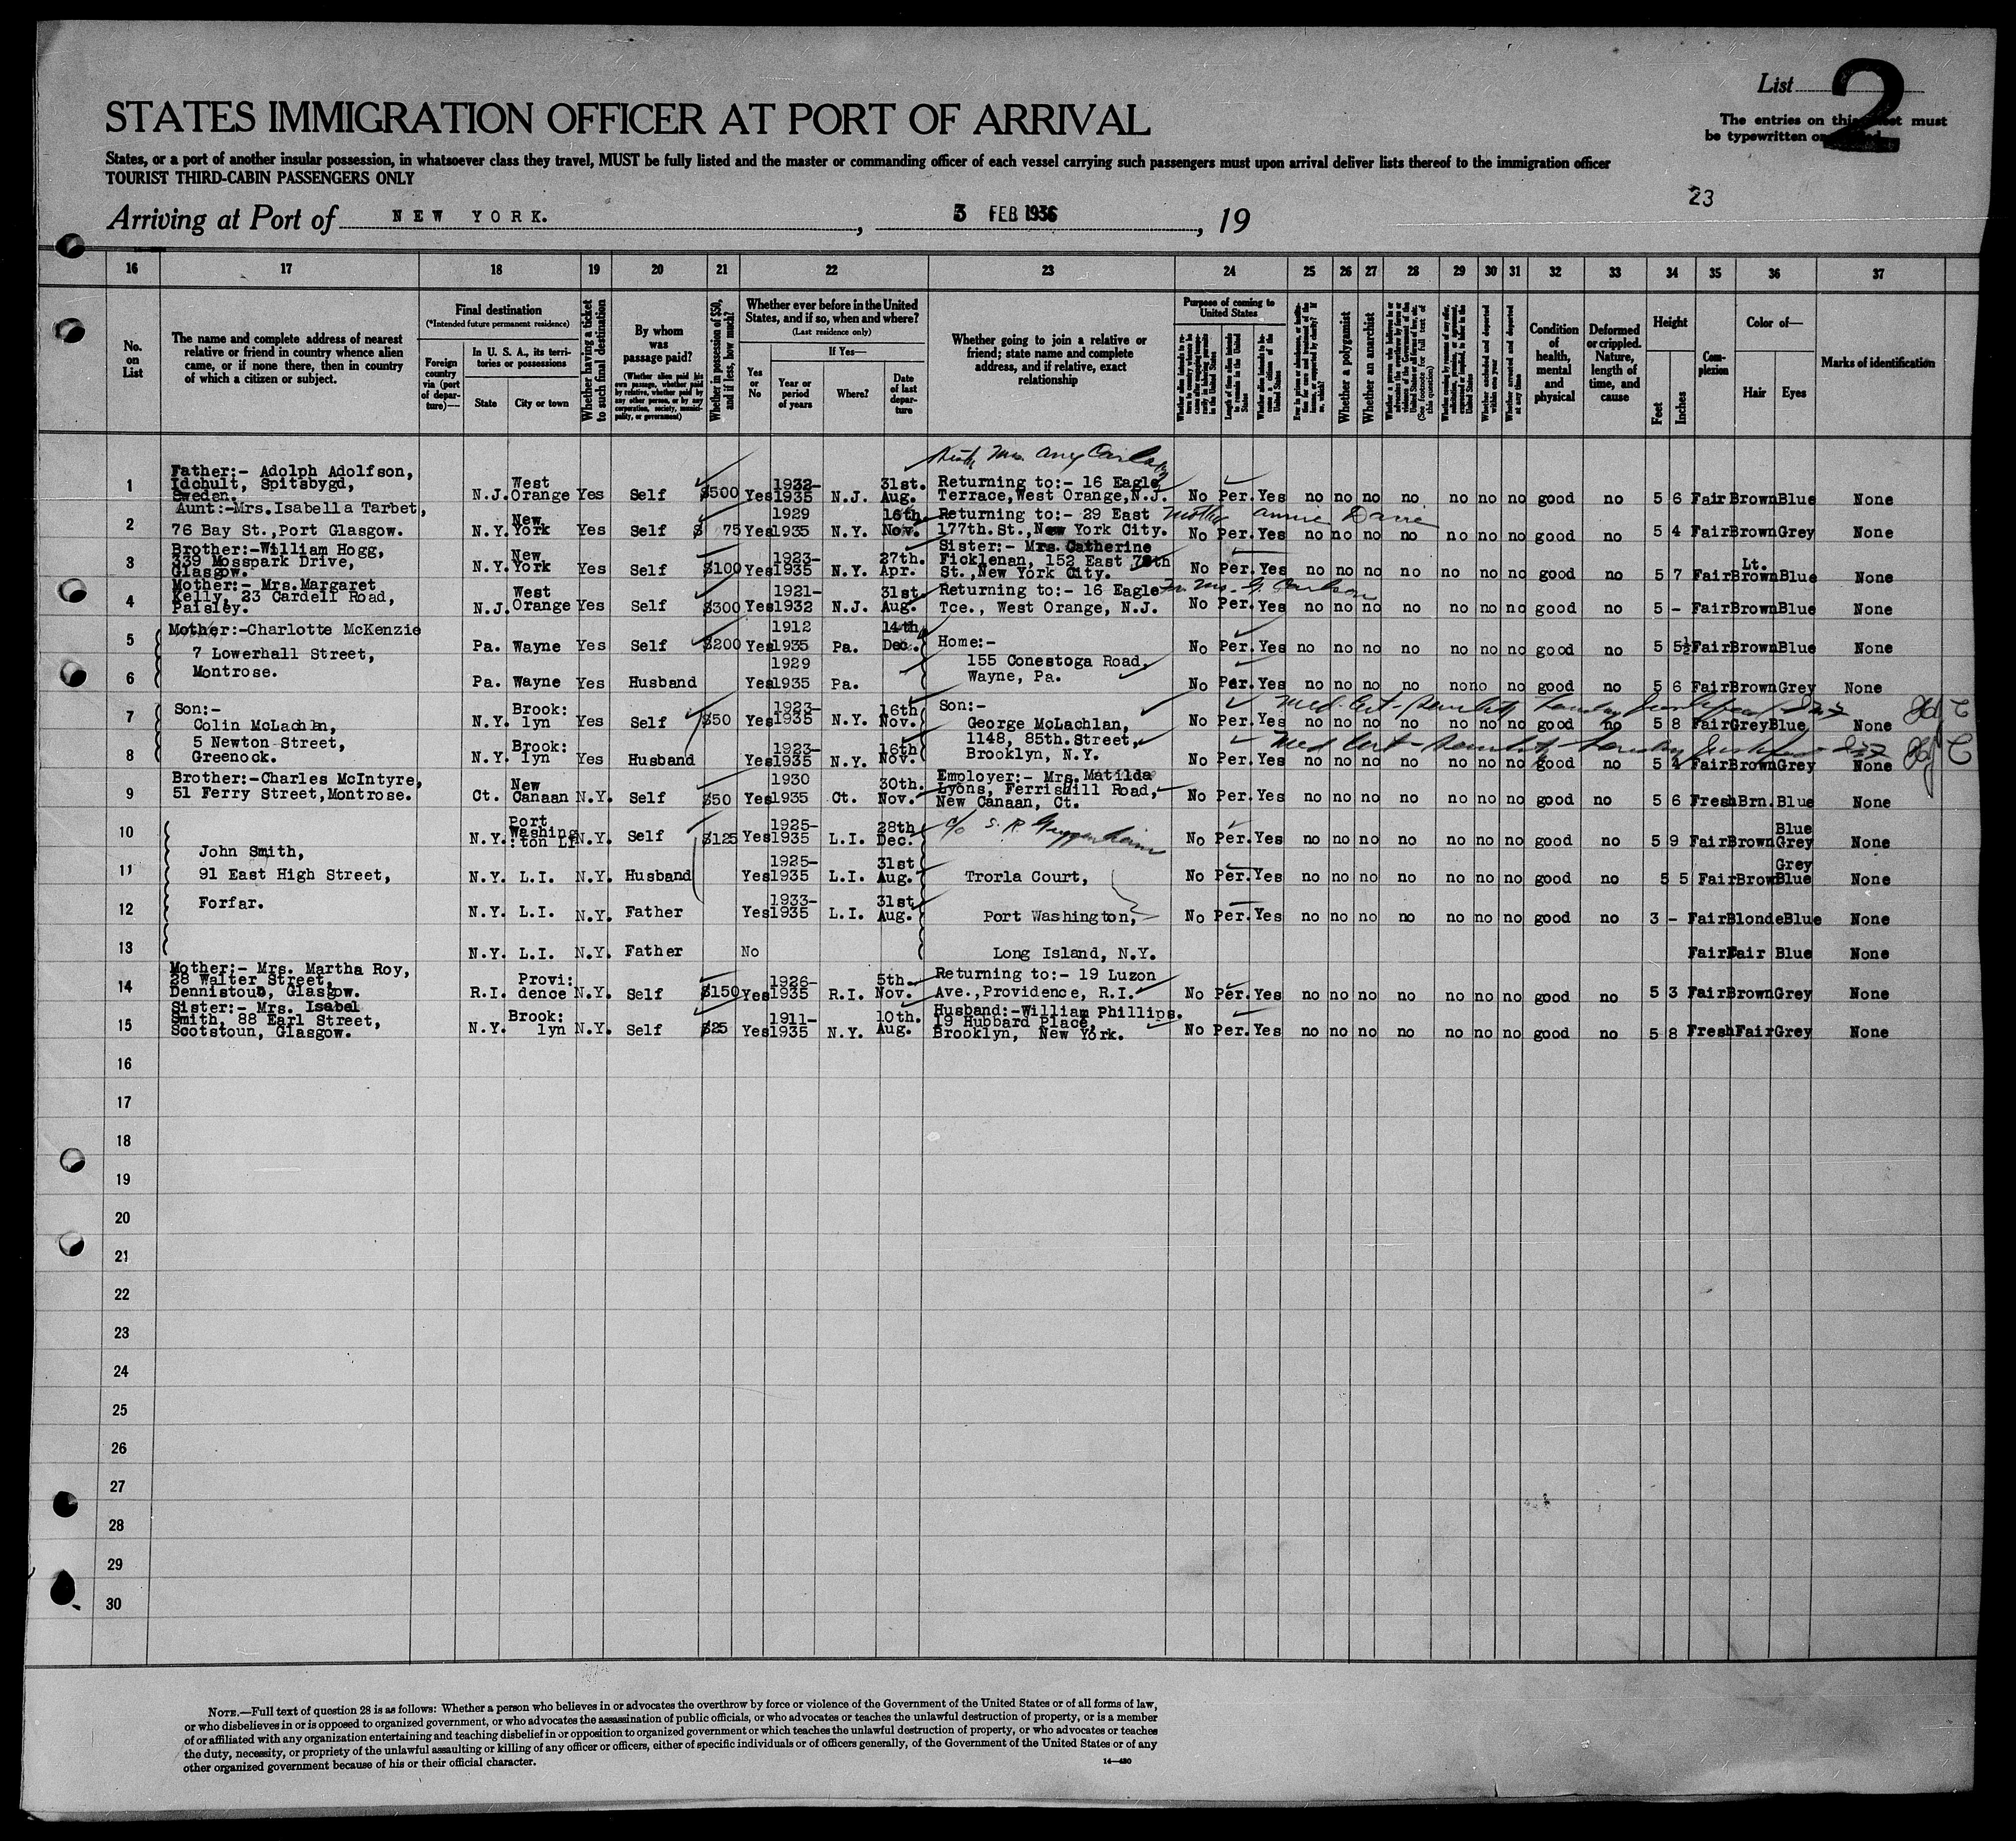 List 2
The entries on this sheet must
be typewritten or
STATES IMMIGRATION OFFICER AT PORT OF ARRIVAL
States, or a port of another insular possession, in whatsoever class they travel, MUST be fully listed and the master or commanding officer of each vessel carrying such passengers must upon arrival deliver lists thereof to the immigration officer
TOURIST THIRD-CABIN PASSENGERS ONLY
23
Arriving at Port of NEW YORK. , 3 FEB 1936 , 19
16 17 18 19 20 21 22 23 24 25 26 27 28 29 30 31 32 33 34 35 36 37
No. on List
The name and complete address of nearest relative or friend in country whence alien came, or if none there, then in country of which a citizen or subject.
Final destination
(*Intended future permanent residence)
Foreign country via (port of departure)—
In U. S. A., its territories or possessions
State
City or town
Whether having a ticket to such final destination
By whom was passage paid?
(Whether alien paid his own passage, whether paid by relative, whether paid by any other person, or by any corporation, society, municipality, or government)
Whether in possession of $50, and if less, how much?
Whether ever before in the United States, and if so, when and where?
(Last residence only)
Yes or No
If Yes—
Year or period of years
Where?
Date of last departure
Whether going to join a relative or friend; state name and complete address, and if relative, exact relationship
Purpose of coming to United States
Whether a polygamist
Whether an anarchist
(See footnote for full text of this question)
Whether excluded and deported within one year
Whether arrested and deported at any time
Condition of health, mental and physical
Deformed or crippled. Nature, length of time, and cause
Height
Feet
Inches
Complexion
Color of—
Hair
Eyes
Marks of identification
1 Father:- Adolph Adolfson, Idchult, Spitsbygd, Sweden. N.J. West Orange Yes Self $500 Yes 1932-1935 N.J. 31st. Aug. Returning to:- 16 Eagle Terrace, West Orange, N.J. No Per. Yes no no no no no no no good no 5 6 Fair Brown Blue None
2 Aunt:-Mrs.Isabella Tarbet, 76 Bay St.,Port Glasgow. N.Y. New York Yes Self $ 75 Yes 1929 1935 N.Y. 16th Nov. Returning to:- 29 East 177th.St.,New York City. Mother Annie Davie No Per. Yes no no no no no no no good no 5 4 Fair Brown Grey None
3 Brother:-William Hogg, 339 Mosspark Drive, Glasgow. N.Y. New York Yes Self $100 Yes 1923-1935 N.Y. 27th. Apr. Sister:- Mrs. Catherine Ficklenan, 152 East 78th St.,New York City. No Per. Yes no no no no no no no good no 5 7 Fair Lt. Brown Blue None
4 Mother:- Mrs.Margaret Kelly, 23 Cardell Road, Paisley. N.J. West Orange Yes Self $300 Yes 1921-1932 N.J. 31st Aug. Returning to:- 16 Eagle Tce., West Orange, N.J. No Per. Yes no no no no no no no good no 5 - Fair Brown Blue None
5 Mother:-Charlotte McKenzie 7 Lowerhall Street, Pa. Wayne Yes Self $200 Yes 1912 1935 Pa. 14th Dec. Home:- No Per. Yes no no no no no no no good no 5 5½ Fair Brown Blue None
6 Montrose. Pa. Wayne Yes Husband Yes 1929 1935 Pa. 155 Conestoga Road, Wayne, Pa. No Per. Yes no no no no no no no good no 5 6 Fair Brown Grey None
7 Son:- Colin McLachlan, N.Y. Brook:lyn Yes Self $50 Yes 1923-1935 N.Y. 16th Nov. Son:- George McLachlan, No Per. Yes no no no no no no no good no 5 8 Fair Grey Blue None
8 5 Newton Street, Greenock. N.Y. Brook:lyn Yes Husband Yes 1923-1935 N.Y. 16th Nov. 1148, 85th.Street, Brooklyn, N.Y. No Per. Yes no no no no no no no good no 5 4 Fair Brown Grey None
9 Brother:-Charles McIntyre, 51 Ferry Street,Montrose. Ct. New Canaan N.Y. Self $50 Yes 1930 1935 Ct. 30th. Nov. Employer:- Mrs. Matilda Lyons, Ferrishill Road, New Canaan, Ct. No Per. Yes no no no no no no no good no 5 6 Fresh Brn. Blue None
10 N.Y. Port Washing:ton LI N.Y. Self $125 Yes 1925-1935 L.I. 28th Dec. c/o S. R. Guggenheim No Per. Yes no no no no no no no good no 5 9 Fair Brown Blue Grey None
11 John Smith, 91 East High Street, N.Y. L.I. N.Y. Husband Yes 1925-1935 L.I. 31st Aug. Trorla Court, No Per. Yes no no no no no no no good no 5 5 Fair Brow Grey Blue None
12 Forfar. N.Y. L.I. N.Y. Father Yes 1933-1935 L.I. 31st Aug. Port Washington, No Per. Yes no no no no no no no good no 3 - Fair Blonde Blue None
13 N.Y. L.I. N.Y. Father No Long Island, N.Y. Fair Fair Blue None
14 Mother:- Mrs. Martha Roy, 28 Walter Street, Dennistoun, Glasgow. R.I. Provi:dence N.Y. Self $150 Yes 1926-1935 R.I. 5th. Nov. Returning to:- 19 Luzon Ave.,Providence, R.I. No Per. Yes no no no no no no no good no 5 3 Fair Brown Grey None
15 Sister:- Mrs. Isabel Smith, 88 Earl Street, Scotstoun, Glasgow. N.Y. Brook:lyn N.Y. Self $25 Yes 1911-1935 N.Y. 10th. Aug. Husband:-William Phillips. 19 Hubbard Place, Brooklyn, New York. No Per. Yes no no no no no no no good no 5 8 Fresh Fair Grey None
16
17
18
19
20
21
22
23
24
25
26
27
28
29
30
NOTE.—Full text of question 28 is as follows: Whether a person who believes in or advocates the overthrow by force or violence of the Government of the United States or of all forms of law,
or who disbelieves in or is opposed to organized government, or who advocates the assassination of public officials, or who advocates or teaches the unlawful destruction of property, or is a member
of or affiliated with any organization entertaining and teaching disbelief in or opposition to organized government or which teaches the unlawful destruction of property, or who advocates or teaches
the duty, necessity, or propriety of the unlawful assaulting or killing of any officer or officers, either of specific individuals or of officers generally, of the Government of the United States or of any
other organized government because of his or their official character.
14—430